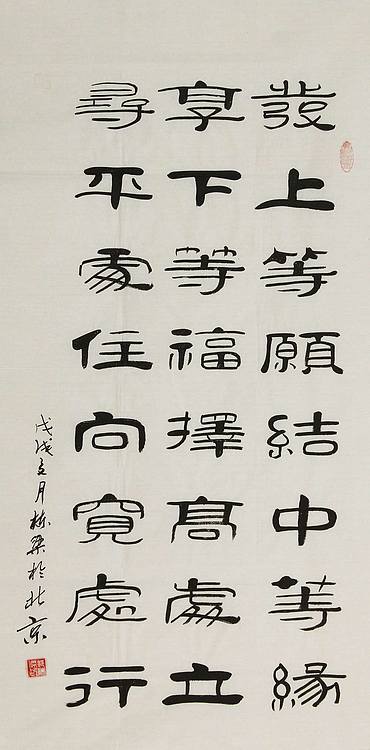 發上等願結中等緣
享下等福擇高處立
尋平處住向寬處行
戊戌年月栋梁於北京